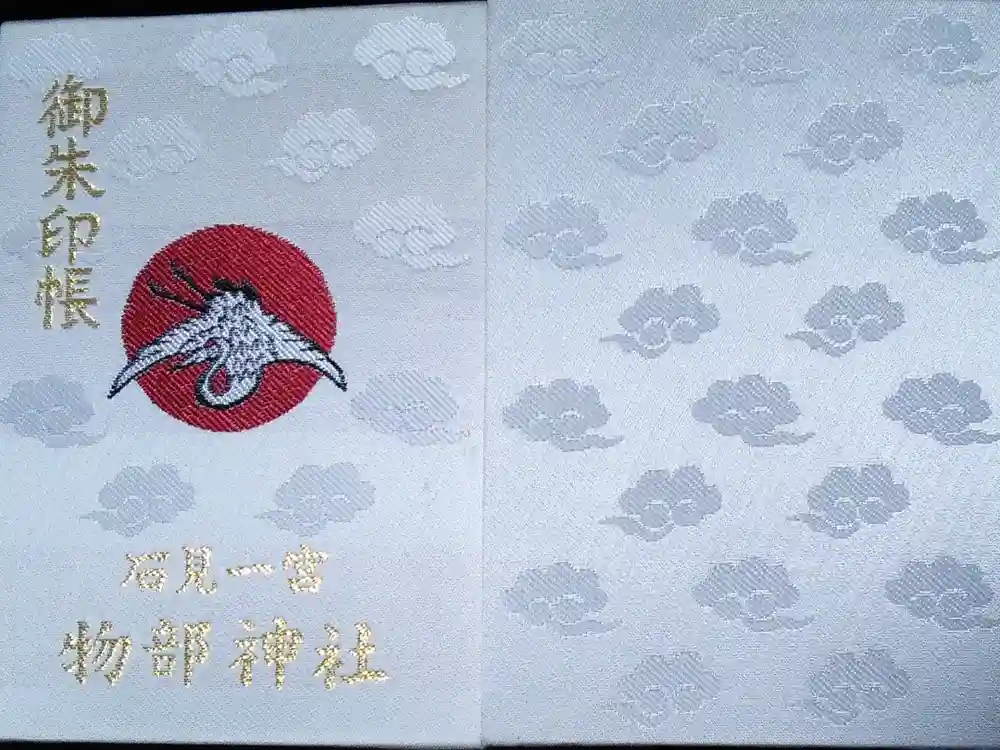 御朱印帳
石見一宮
物部神社